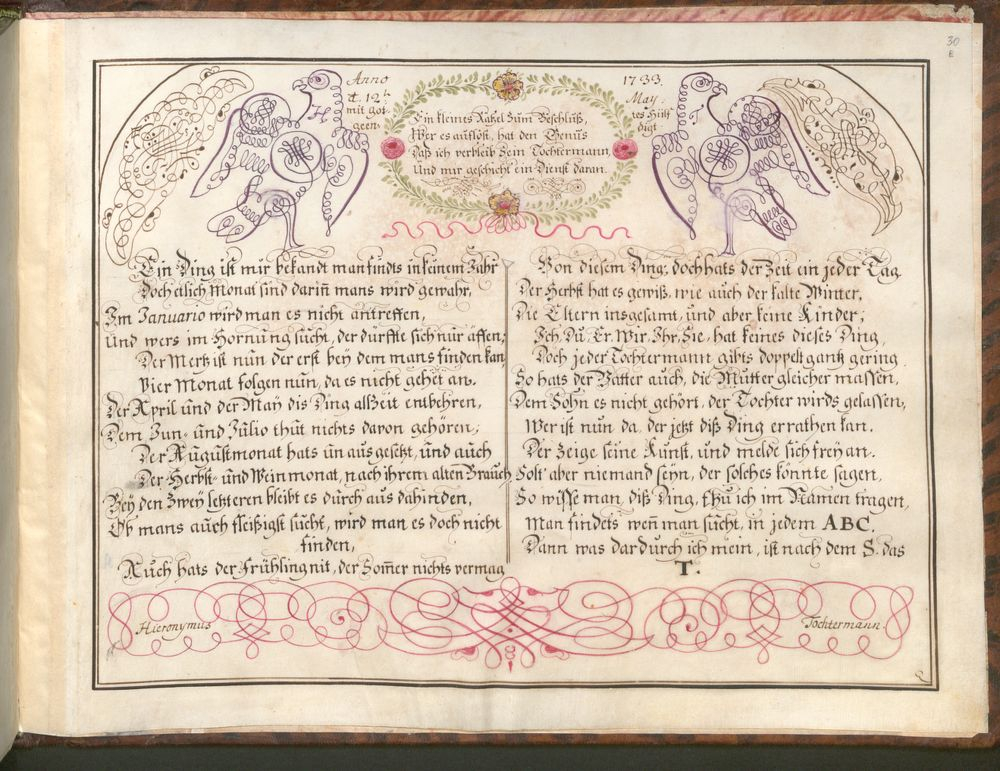 30
E
Anno 1733.
d. 12.t May.
mit got- tes Hülf
geen- digt.
H T
Ein kleines Rätzel zum Beschluß,
Wer es auflöst, hat den Genus
Daß ich verbleib Sein Tochtermann,
Und mir geschicht ein Dienst daran.
Ein Ding ist mir bekandt man findts in keinem Jahr
Doch etlich Monat sind darin̄ mans wird gewahr,
Im Januario wird man es nicht antreffen,
Und wers im Hornung sucht, der dürffte sich nur äffen;
Der Mertz ist nun der erst bey dem mans finden kan,
Vier Monat folgen nun, da es nicht gehet an.
Der April und der May dis Ding allzeit entbehren,
Dem Jun- und Julio thut nichts davon gehören;
Der Augustmonat hats un ausgesetzt, und auch
Der Herbst- und Weinmonat, nach ihrem alten Brauch,
Bey den Zwey letzteren bleibt es durch aus dahinden,
Ob mans auch fleißigst sucht, wird man es doch nicht
finden,
Auch hats der Frühling nit, der Som̄er nichts vermag
Von diesem Ding, doch hats der Zeit ein jeder Tag.
Der Herbst hat es gewiß, wie auch der kalte Winter,
Die Eltern insgesamt, und aber keine Kinder;
Ich, Du, Er, Wir, Ihr, Sie, hat keines dieses Ding,
Doch jeder Tochtermann gibts doppelt gantz gering
So hats der Vatter auch, die Mutter gleicher massen,
Dem Sohn es nicht gehört, der Tochter wirds gelassen,
Wer ist nun da, der jetzt diß Ding errathen kan.
Der zeige seine Kunst, und melde sich frey an.
Solt aber niemand seyn, der solches könnte sagen,
So wisse man, diß Ding, thu ich im Namen tragen,
Man findets wen̄ man sucht, in jedem ABC,
Dann was dardurch ich mein, ist nach dem S. das
T.
Hieronymus
Tochtermann.